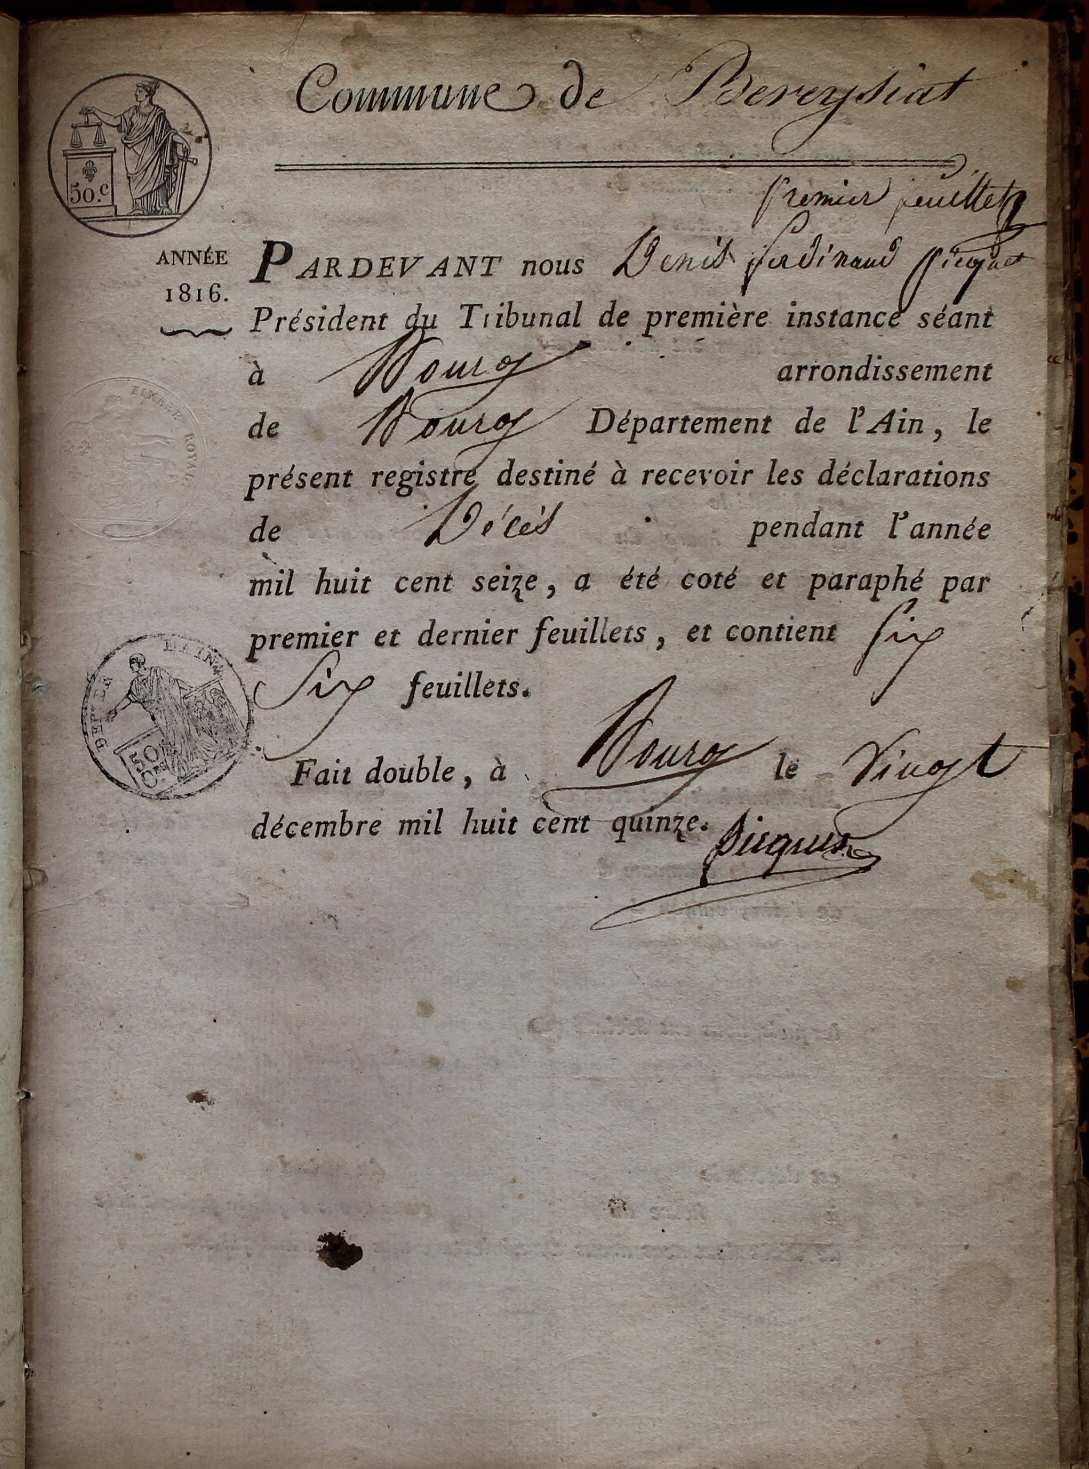 Commune de Bereysiat
premier feuillet
50.c
ANNÉE
1816.
PARDEVANT nous Denis ferdinand Picquet
Président du Tribunal de première instance séant
à Bourg arrondissement
de Bourg Département de l'Ain, le
présent registre destiné à recevoir les déclarations
de Décès pendant l'année
mil huit cent seize, a été coté et paraphé par
premier et dernier feuillets, et contient Six
Six feuillets.
TIMBRE ROYAL
DEP. DE L'AIN
50
Cs
Fait double, à Bourg le Vingt
décembre mil huit cent quinze.
Picquet